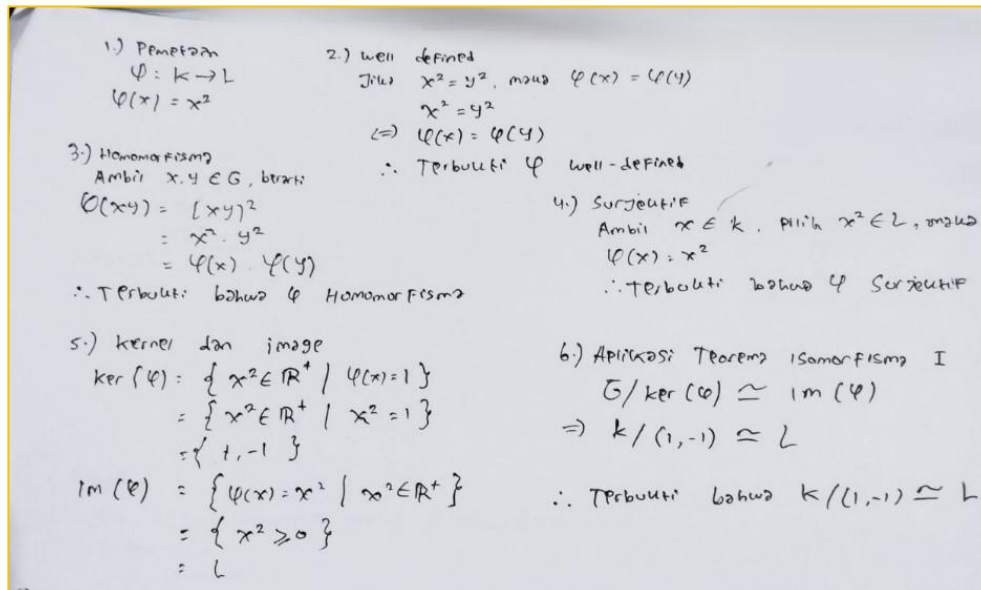 1.) Pemetaan
φ : K → L
φ(x) = x²
2.) Well defined
Jika x² = y², maka φ(x) = φ(y)
x² = y²
⇔ φ(x) = φ(y)
∴ Terbukti φ well-defined
3.) Homomorfisma
Ambil x,y ∈ G, berarti
φ(xy) = (xy)²
= x² . y²
= φ(x) . φ(y)
∴ Terbukti bahwa φ Homomorfisma
4.) Surjektif
Ambil x ∈ K, pilih x² ∈ L, maka
φ(x) = x²
∴ Terbukti bahwa φ Surjektif
5.) Kernel dan image
ker (φ) = { x² ∈ ℝ⁺ | φ(x) = 1 }
= { x² ∈ ℝ⁺ | x² = 1 }
= { 1, -1 }
Im (φ) = { φ(x) = x² | x² ∈ ℝ⁺ }
= { x² ⩾ 0 }
= L
6.) Aplikasi Teorema Isomorfisma I
G/ker (φ) ≃ Im (φ)
⇒ K/(1,-1) ≃ L
∴ Terbukti bahwa K/(1,-1) ≃ L